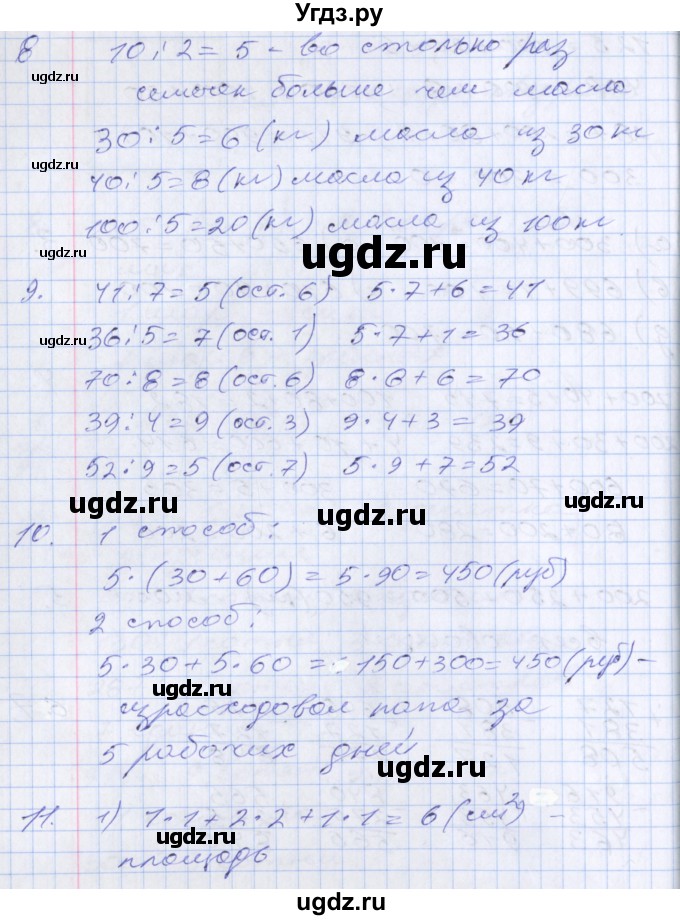 Угдз.ру
8 10:2=5 - во столько раз
семечек больше чем масла
30:5=6 (кг) масла из 30 кг
40:5=8 (кг) масла из 40 кг
100:5=20 (кг) масла из 100 кг.
9. 41:7=5 (ост. 6) 5·7+6=41
36:5=7 (ост. 1) 5·7+1=36
70:8=8 (ост. 6) 8·8+6=70
39:4=9 (ост. 3) 9·4+3=39
52:9=5 (ост. 7) 5·9+7=52
10. 1 способ:
5·(30+60)=5·90=450 (руб)
2 способ:
5·30+5·60=150+300=450 (руб) -
израсходовал папа за
5 рабочих дней
11. 1) 1·1+2·2+1·1=6 (см²) -
площадь
ugdz.ru
ugdz.ru
ugdz.ru
ugdz.ru
ugdz.ru
ugdz.ru
ugdz.ru
ugdz.ru
ugdz.ru
ugdz.ru
ugdz.ru
ugdz.ru
ugdz.ru